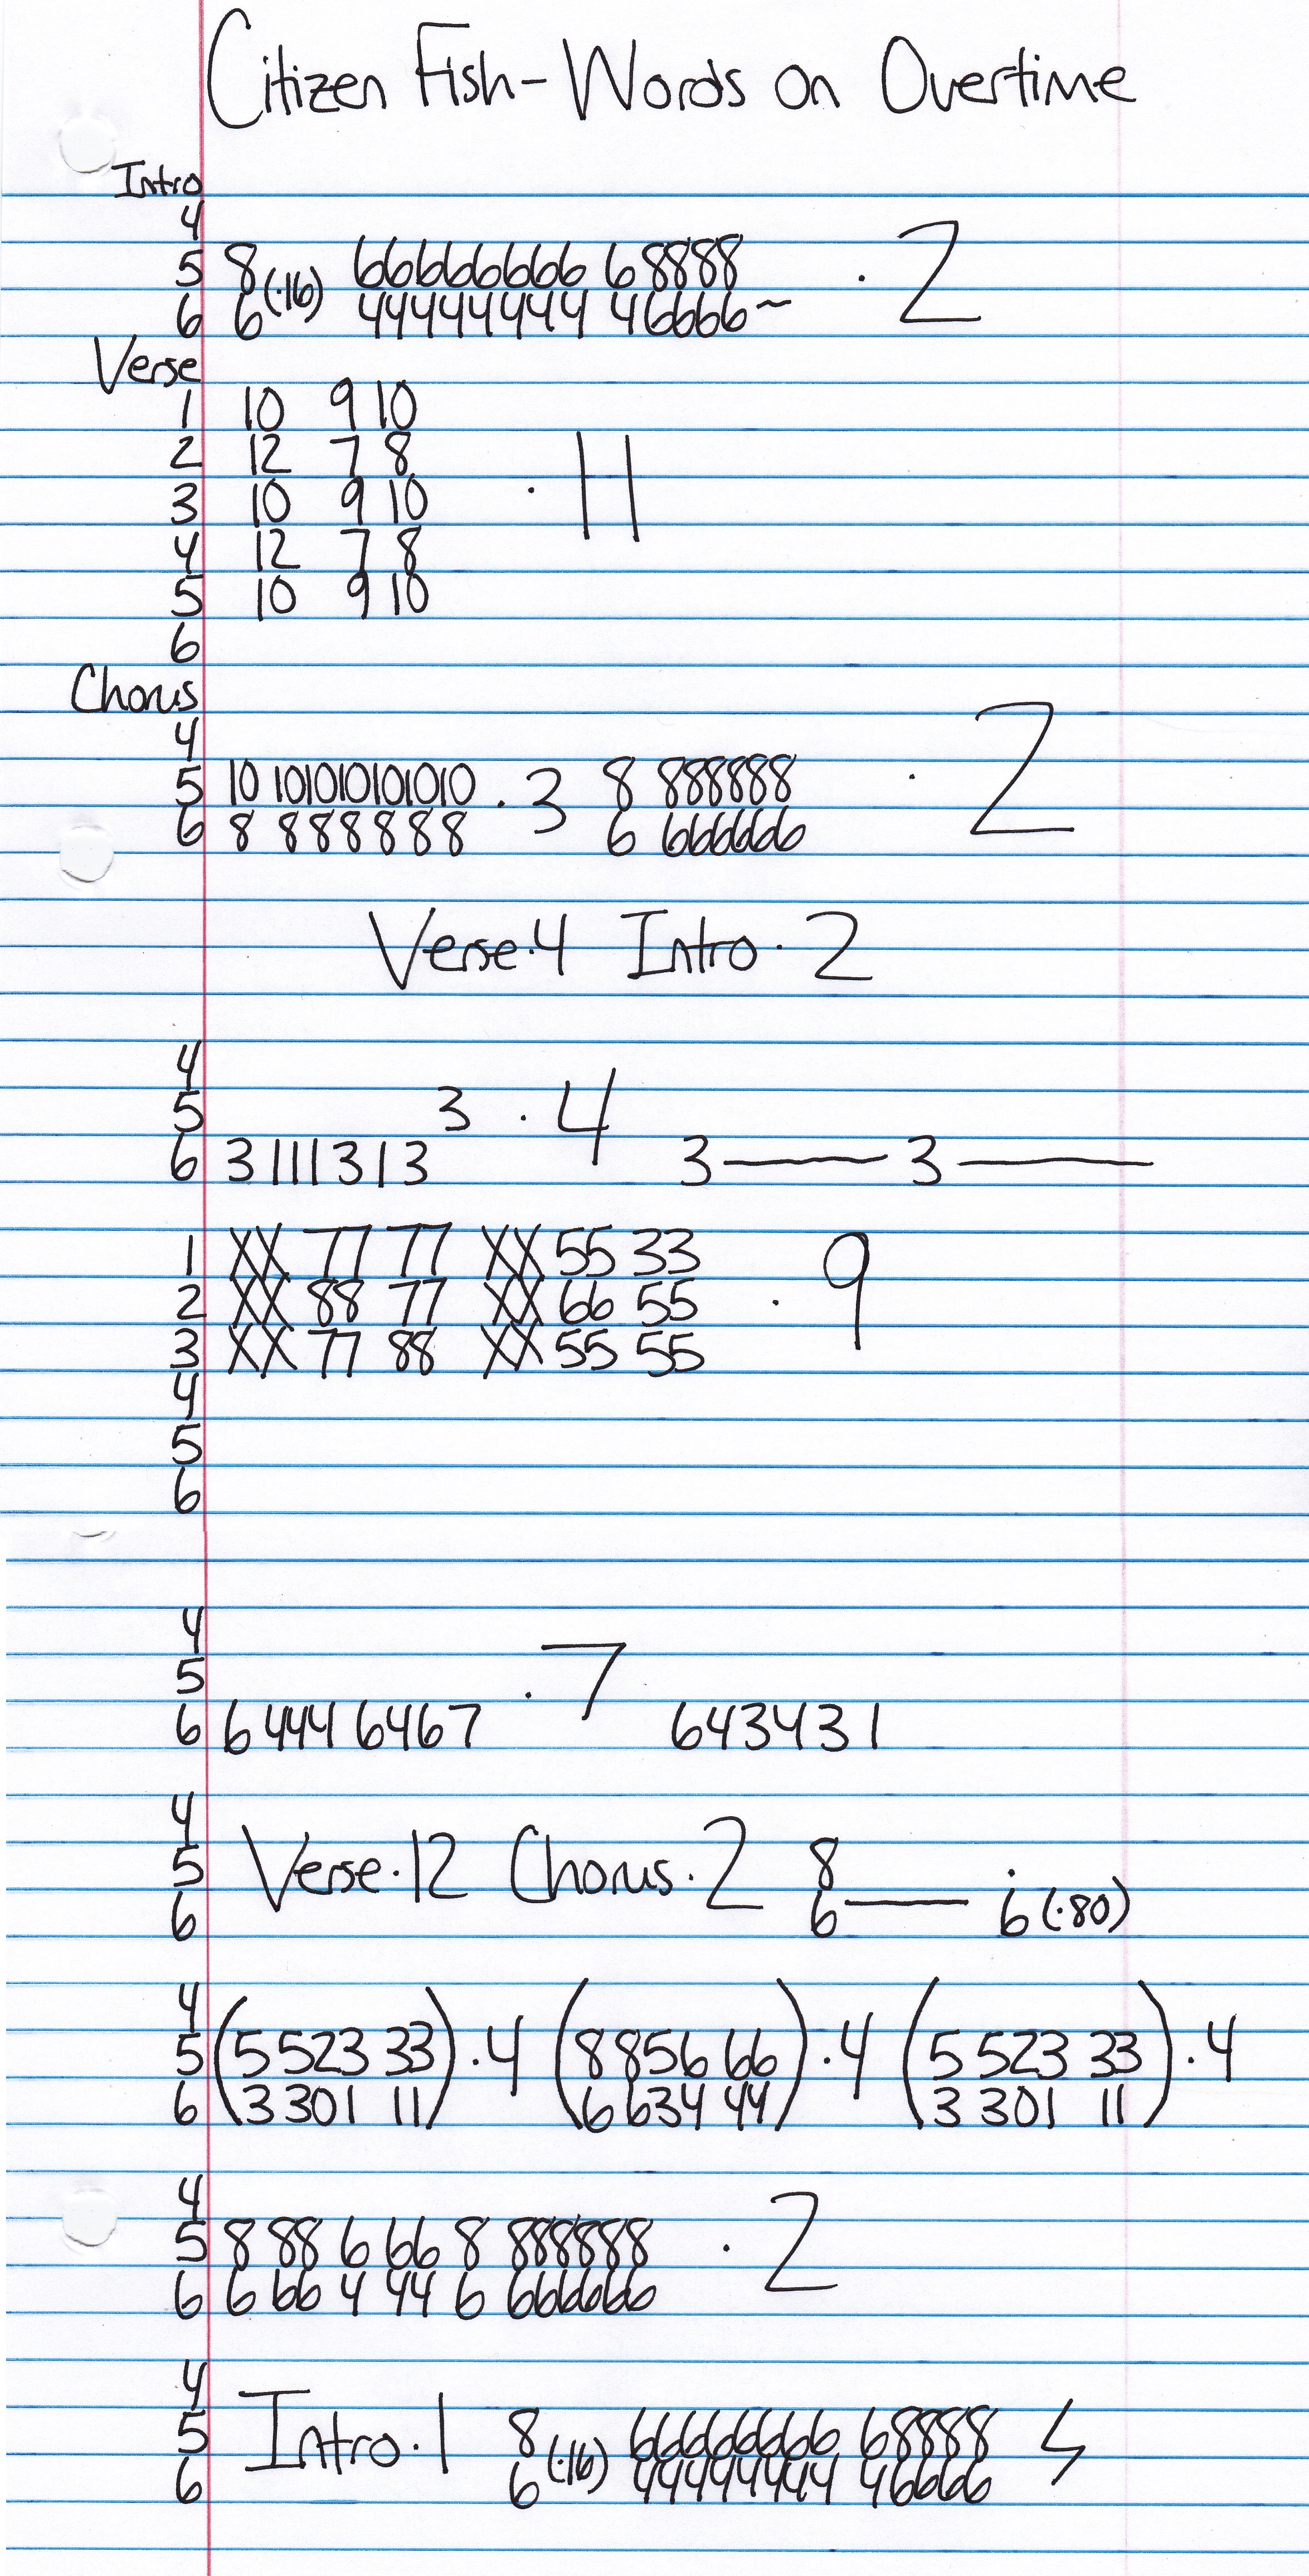 Citizen Fish - Words on Overtime
Intro
4
5 8 66666666 68888
(·16) · 2
6 6 44444444 46666~
Verse
1 10 9 10
2 12 7 8
3 10 9 10 · 11
4 12 7 8
5 10 9 10
6
Chorus
4
5 10 101010101010 · 3 8 888888 · 2
6 8 888888 6 666666
Verse·4 Intro·2
4
5 3 · 4
6 3 111313 3—— 3——
1 XX 77 77 XX 55 33
2 XX 88 77 XX 66 55 · 9
3 XX 77 88 XX 55 55
4
5
6
4
5 · 7
6 6 444 6467 643431
4
5 Verse·12 Chorus·2 8 ·
6 6—— 6(·80)
4
5 (5 523 33)·4 (8 856 66)·4 (5 523 33)·4
6 3 301 11 6 634 44 3 301 11
4
5 8 88 6 66 8 888888 · 2
6 6 66 4 44 6 666666
4
5 Intro·1 8 (·16) 66666666 68888
6 6 44444444 46666